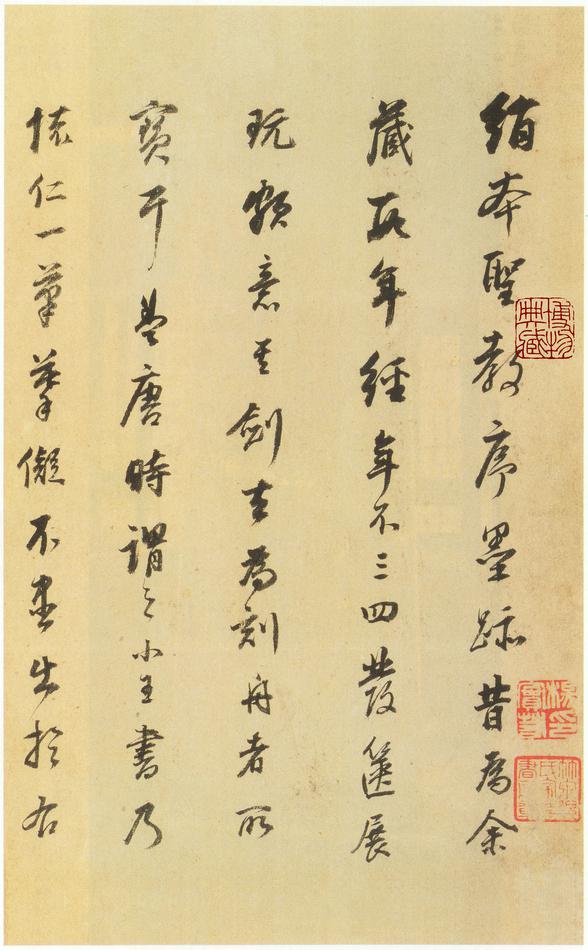 絹本聖教序墨跡昔為余
藏年經年不三四發篋展
玩意其劍去為刻舟者所
寶耳唐時謂之小王書乃
懷仁一筆摹擬不盡出於右
博物
典藏